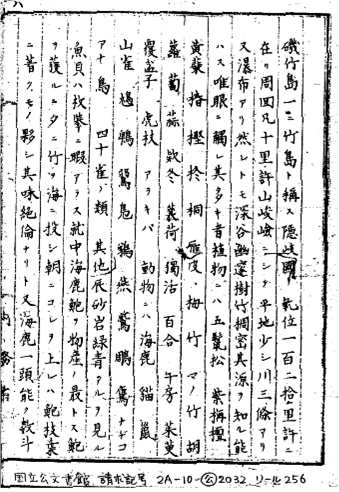 磯竹島一ニ竹島ト稱ス隠岐國ノ乾位一百二拾里許ニ
在リ周回凡十里許山峻嶮ニシテ平地少シ川三條アリ
又瀑布アリ然レトモ深谷幽邃樹竹稠密其源ヲ知ル能
ハス唯眼ニ觸レ其多キ者植物ニハ五鬣松 紫栴檀
黄蘗 椿 樫 柊 桐 雁皮 栂 竹 マノ竹 胡
蘿蔔 蒜 欵冬 蘘荷 獨活 百合 牛房 茱萸
覆盆子 虎杖 アラキパ 動物ニハ海鹿 貓 鼠
山雀 鳩 鵯 鶸 鳧 鵜 燕 鷲 鵰 鷹 ナヂコ
アナ鳥 四十雀ノ類 其他辰砂岩緑青アルヲ見ル
魚貝ハ枚擧ニ暇アラス就中海鹿鮑ヲ物産ノ最トス鮑
ヲ獲ルニ夕ニ竹ヲ海ニ投シ朝ニコレヲ上レハ鮑枝葉
ニ着クモノ夥シ其味絶倫ナリト又海鹿一頭能ク數斗
内務省
国立公文書館 請求記号 2A-10-公2032 リール256